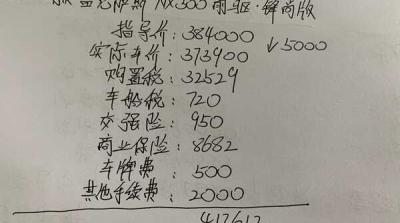 NX300两驱·锋尚版
指导价: 384000
实际车价: 373900 ↓5000
购置税: 32529
车船税: 720
交强险: 950
商业保险: 8682
车牌费: 500
其他手续费: 2000